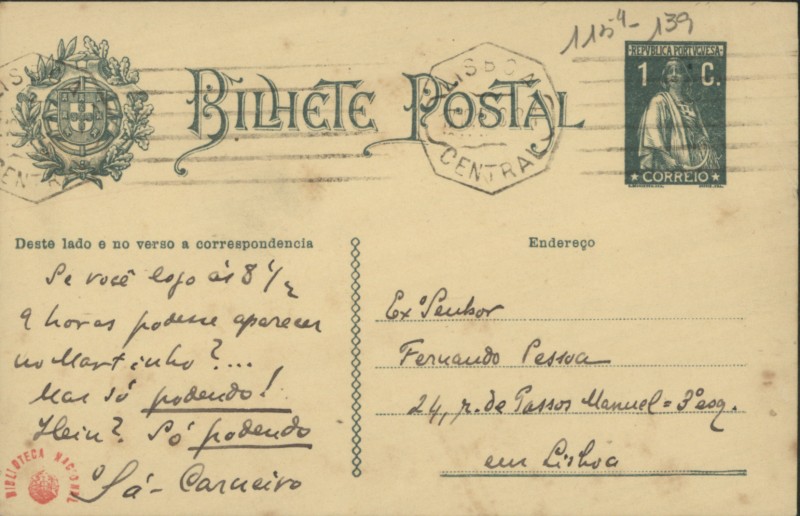 115⁴-139
REPVBLICA PORTVGVESA
1 C.
CORREIO
BILHETE POSTAL
LISBOA
CENTRAL
LISBOA
CENTRAL
Deste lado e no verso a correspondencia
Se você logo ás 8 1/2
9 horas podesse aparecer
no Martinho?...
Mas só podendo!
Hein? Só podendo
o Sá-Carneiro
BIBLIOTECA NACIONAL
Endereço
Exº Senhor
Fernando Pessoa
24, r. de Passos Manuel = 3º esq.
em Lisboa